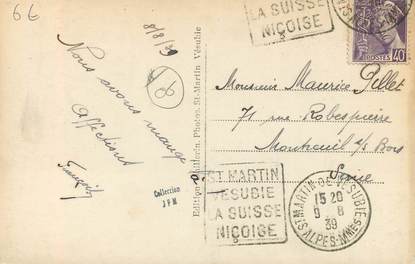 66
8/8/39
LA SUISSE
NIÇOISE
POSTES
40
Nous avons mangé
affections
06
Edition Millerin, Photos, St-Martin Vésubie
Collection
JPM
Monsieur Maurice Pellet
71 rue Robespierre
Montreuil s/ Bois
Seine
ST MARTIN
VESUBIE
LA SUISSE
NIÇOISE
ST MARTIN DE VESUBIE
15 20
9 - 8
39
ALPES-MMES